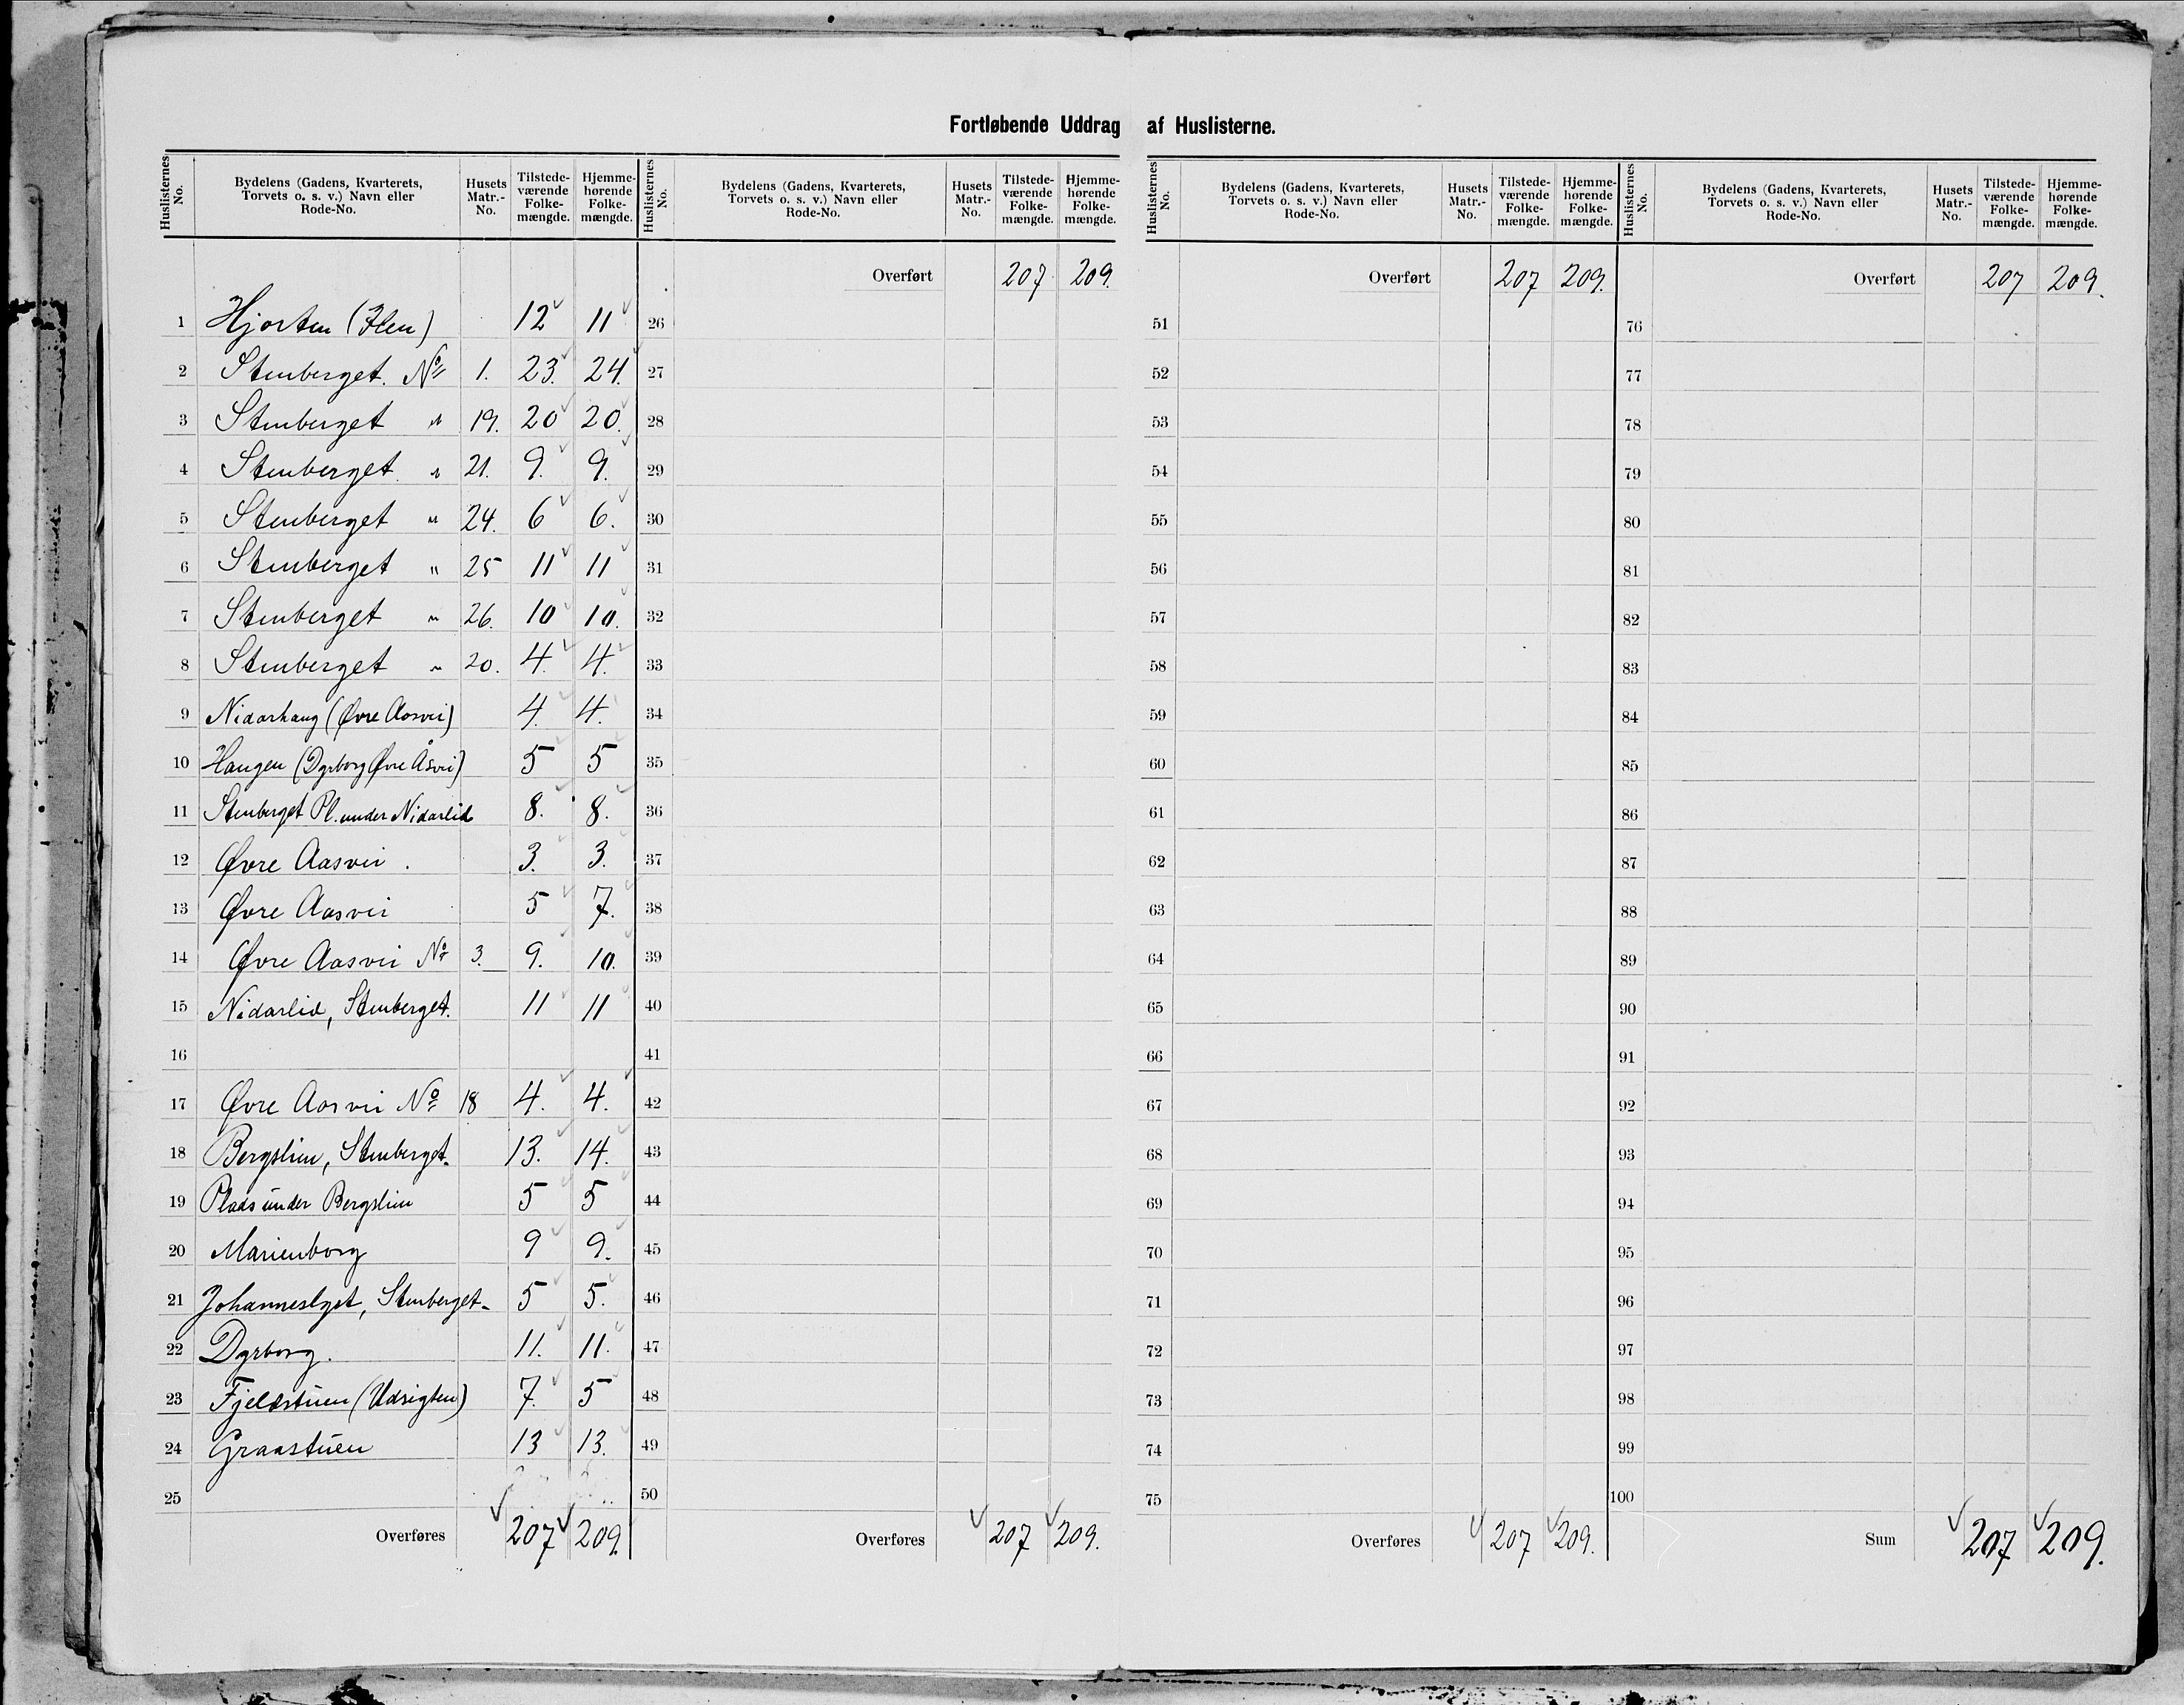 Fortløbende Uddrag af Huslisterne.
Huslisternes No. Bydelens (Gadens, Kvarterets, Torvets o. s. v.) Navn eller Rode-No. Husets Matr.-No. Tilstede-værende Folke-mængde. Hjemme-hørende Folke-mængde.
1 Hjorten (Ilen) 12 11
2 Stenberget. No 1. 23. 24.
3 Stenberget " 19. 20 20.
4 Stenberget. " 21. 9. 9.
5 Stenberget " 24. 6 6.
6 Stenberget " 25 11 11
7 Stenberget " 26. 10 10.
8 Stenberget " 20. 4. 4.
9 Nidarhaug (Øvre Aasvei) 4. 4.
10 Haugen (Dyrborg Øvre Åsvei) 5 5
11 Stenberget Pl. under Nidarlid 8. 8.
12 Øvre Aasvei. 3. 3.
13 Øvre Aasvei 5 7.
14 Øvre Aasvei No 3. 9. 10.
15 Nidarlid, Stenberget. 11 11
16
17 Øvre Aasvei No 18 4. 4.
18 Bergslien, Stenberget. 13. 14.
19 Plads under Bergslien 5 5
20 Marienborg 9 9.
21 Johanneslyst, Stenberget. 5 5.
22 Dyrborg. 11. 11.
23 Fjeldstuen (Udsigten) 7. 5
24 Graastuen 13 13.
25
Overføres 207 209.
Huslisternes No. Bydelens (Gadens, Kvarterets, Torvets o. s. v.) Navn eller Rode-No. Husets Matr.-No. Tilstede-værende Folke-mængde. Hjemme-hørende Folke-mængde.
Overført 207 209.
26
27
28
29
30
31
32
33
34
35
36
37
38
39
40
41
42
43
44
45
46
47
48
49
50
Overføres 207 209.
Huslisternes No. Bydelens (Gadens, Kvarterets, Torvets o. s. v.) Navn eller Rode-No. Husets Matr.-No. Tilstede-værende Folke-mængde. Hjemme-hørende Folke-mængde.
Overført 207 209.
51
52
53
54
55
56
57
58
59
60
61
62
63
64
65
66
67
68
69
70
71
72
73
74
75
Overføres 207 209.
Huslisternes No. Bydelens (Gadens, Kvarterets, Torvets o. s. v.) Navn eller Rode-No. Husets Matr.-No. Tilstede-værende Folke-mængde. Hjemme-hørende Folke-mængde.
Overført 207 209.
76
77
78
79
80
81
82
83
84
85
86
87
88
89
90
91
92
93
94
95
96
97
98
99
100
Sum 207 209.